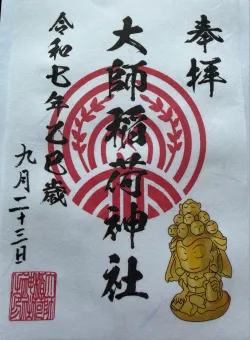 奉拝
大師稲荷神社
令和七年乙巳歳
九月二十三日